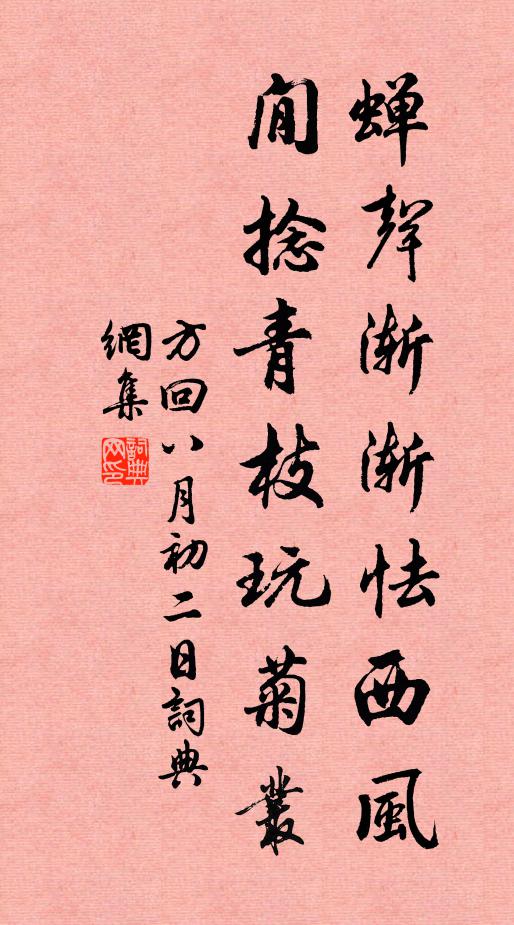 蝉聲渐渐怯西風
閒捻青枝玩菊叢
方回八月初二日詞典
網集
詞典
网印